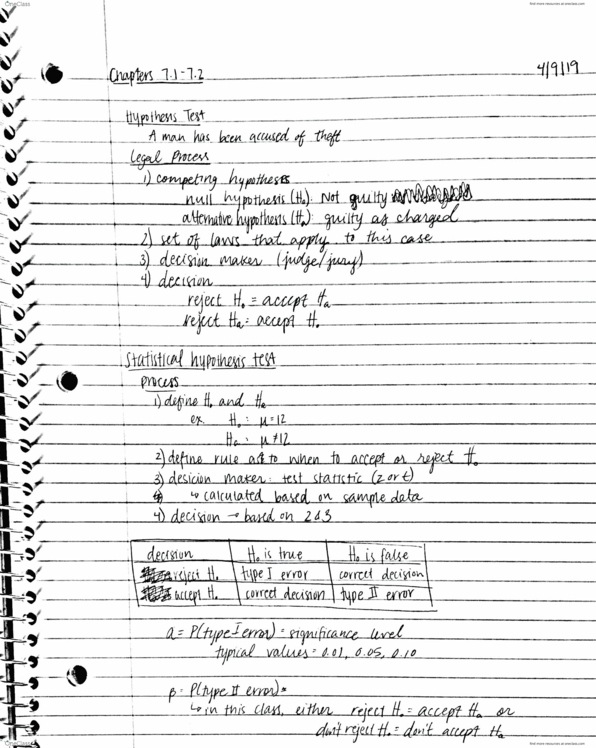 OneClass
find more resources at oneclass.com
4/9/19
Chapters 7.1-7.2
Hypothesis Test
A man has been accused of theft
Legal Process
1) competing hypotheses
null hypothesis (H₀): Not guilty
alternative hypothesis (Hₐ): guilty as charged
2) set of laws that apply to this case
3) decision maker (judge/jury)
4) decision
reject H₀ = accept Hₐ
reject Hₐ = accept H₀
Statistical hypothesis test
process
1) define H₀ and Hₐ
ex. H₀: μ=12
Hₐ: μ≠12
2) define rule as to when to accept or reject H₀
3) desicion maker: test statistic (z or t)
↳ calculated based on sample data
4) decision → based on 2&3
decision H₀ is true H₀ is false
reject H₀ type I error correct decision
accept H₀ correct decision type II error
α = P(type I error) = significance level
typical values = 0.01, 0.05, 0.10
β = P(type II error)*
↳ in this class, either reject H₀ = accept Hₐ or
don't reject H₀ = don't accept Hₐ
OneClass
find more resources at oneclass.com